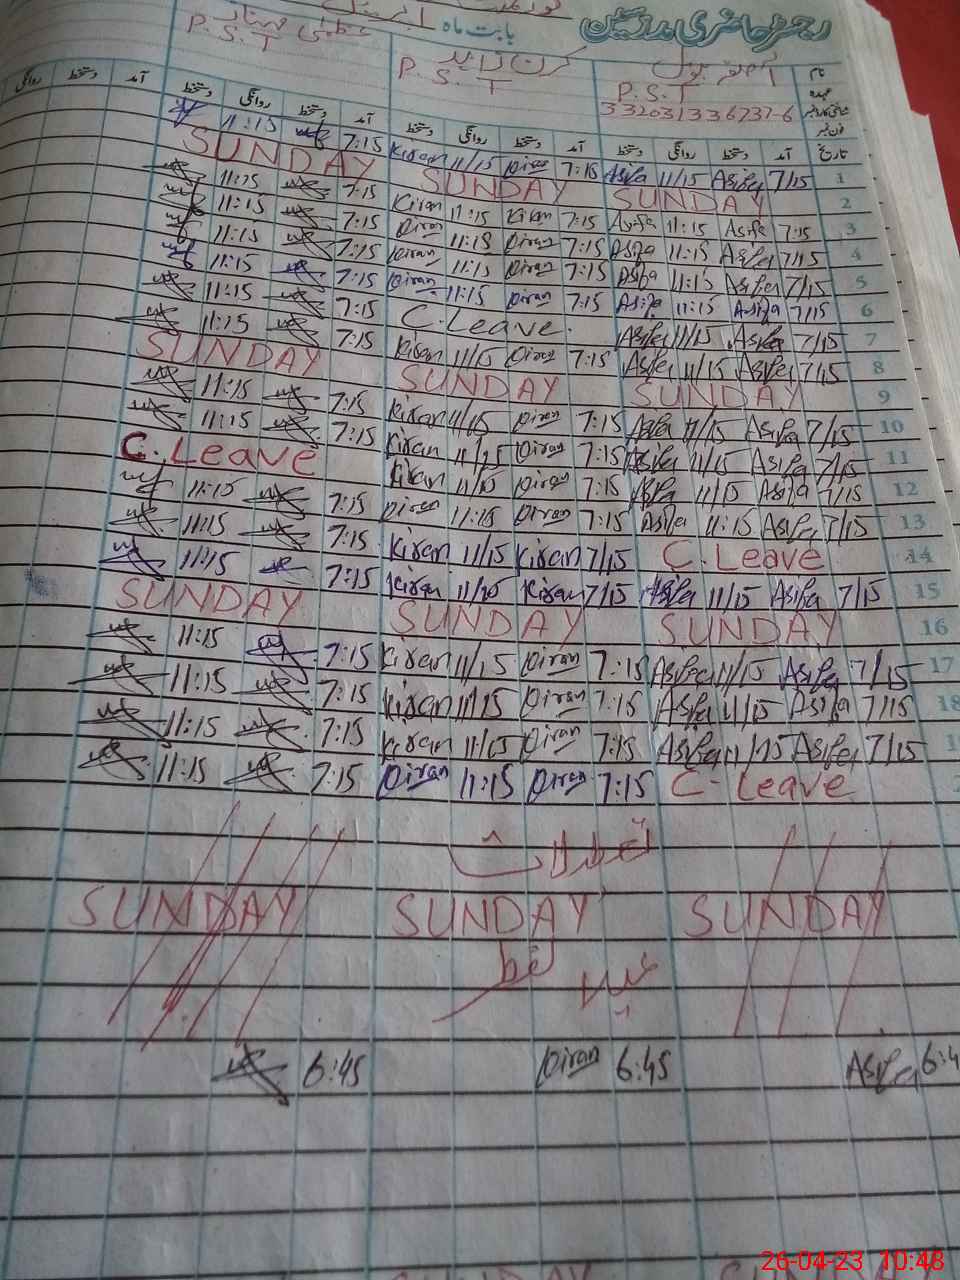 رجسٹر حاضری مدرسین بابت ماہ اپریل
نام آصفہ بتول کرن زاہد عظمیٰ ممتاز
عہدہ P.S.T P.S.T P.S.T
شناختی کارڈ نمبر
فون نمبر
تاریخ آمد دستخط روانگی دستخط آمد دستخط روانگی دستخط آمد دستخط روانگی دستخط آمد دستخط روانگی
11:15 7:15 Kiran 11/15 Kiran 7:15 Asifa 11/15 Asifa 7/15 1
SUNDAY SUNDAY SUNDAY 2
11:15 7:15 Kiran 11:15 Kiran 7:15 Asifa 11:15 Asifa 7:15 3
11:15 7:15 Kiran 11:15 Kiran 7:15 Asifa 11:15 Asifa 7/15 4
11:15 7:15 Kiran 11:15 Kiran 7:15 Asifa 11:15 Asifa 7/15 5
11:15 7:15 Kiran 11:15 Kiran 7:15 Asifa 11:15 Asifa 7/15 6
11:15 7:15 C.Leave. Asifa 11/15 Asifa 7/15 7
11:15 7:15 Kiran 11/15 Kiran 7:15 Asifa 11/15 Asifa 7/15 8
SUNDAY SUNDAY SUNDAY 9
11:15 7:15 Kiran 11/15 Kiran 7:15 Asifa 11/15 Asifa 7/15 10
11:15 7:15 Kiran 11/15 Kiran 7:15 Asifa 11/15 Asifa 7/15 11
C.Leave Kiran 11/15 Kiran 7:15 Asifa 11/15 Asifa 7/15 12
11:15 7:15 Kiran 11:15 Kiran 7:15 Asifa 11:15 Asifa 7/15 13
11:15 7:15 Kiran 11/15 Kiran 7/15 C.Leave 14
11:15 7:15 Kiran 11/15 Kiran 7/15 Asifa 11/15 Asifa 7/15 15
SUNDAY SUNDAY SUNDAY 16
11:15 7:15 Kiran 11/15 Kiran 7:15 Asifa 11/15 Asifa 7/15 17
11:15 7:15 Kiran 11/15 Kiran 7:15 Asifa 11/15 Asifa 7/15 18
11:15 7:15 Kiran 11/15 Kiran 7:15 Asifa 11/15 Asifa 7/15
11:15 7:15 Kiran 11:15 Kiran 7:15 C-Leave
تعطیلات
SUNDAY SUNDAY SUNDAY
عید الفطر
6:45 Kiran 6:45 Asifa 6:4
26-04-23 10:48